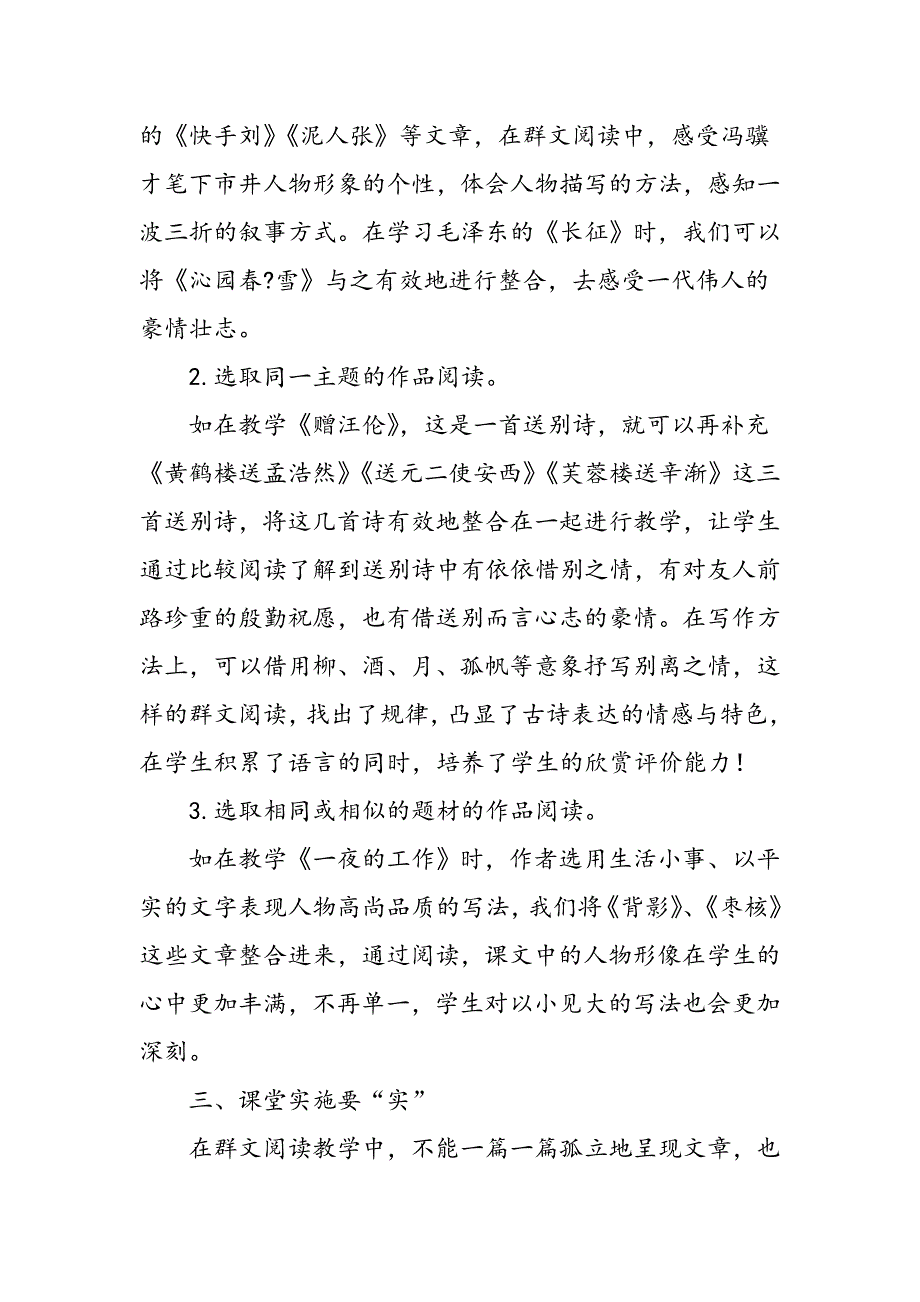 的《快手刘》《泥人张》等文章，在群文阅读中，感受冯骥
才笔下市井人物形象的个性，体会人物描写的方法，感知一
波三折的叙事方式。在学习毛泽东的《长征》时，我们可以
将《沁园春?雪》与之有效地进行整合，去感受一代伟人的
豪情壮志。
2.选取同一主题的作品阅读。
如在教学《赠汪伦》，这是一首送别诗，就可以再补充
《黄鹤楼送孟浩然》《送元二使安西》《芙蓉楼送辛渐》这三
首送别诗，将这几首诗有效地整合在一起进行教学，让学生
通过比较阅读了解到送别诗中有依依惜别之情，有对友人前
路珍重的殷勤祝愿，也有借送别而言心志的豪情。在写作方
法上，可以借用柳、酒、月、孤帆等意象抒写别离之情，这
样的群文阅读，找出了规律，凸显了古诗表达的情感与特色，
在学生积累了语言的同时，培养了学生的欣赏评价能力！
3.选取相同或相似的题材的作品阅读。
如在教学《一夜的工作》时，作者选用生活小事、以平
实的文字表现人物高尚品质的写法，我们将《背影》、《枣核》
这些文章整合进来，通过阅读，课文中的人物形像在学生的
心中更加丰满，不再单一，学生对以小见大的写法也会更加
深刻。
三、课堂实施要“实”
在群文阅读教学中，不能一篇一篇孤立地呈现文章，也